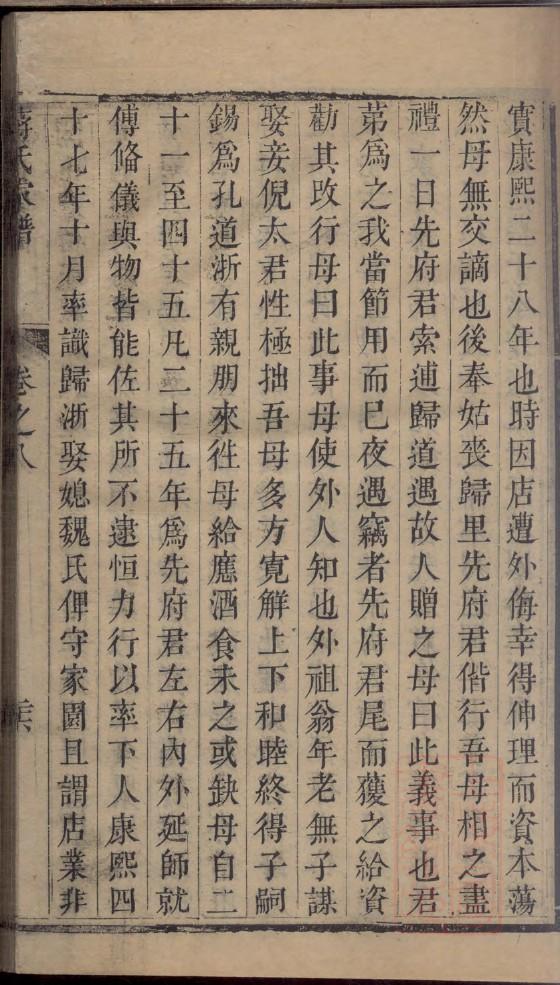 實康熙二十八年也時因店遭外侮幸得伸理而資本蕩
然母無交謫也後奉姑喪歸里先府君偕行吾母相之盡
禮一日先府君索逋歸道遇故人贈之母曰此義事也君
苐爲之我當節用而已夜遇竊者先府君尾而獲之給資
勸其改行母曰此事母使外人知也外祖翁年老無子謀
娶妾倪太君性極拙吾母多方寛解上下和睦終得子嗣
錫爲孔道浙有親朋來徃母給應酒食未之或缺母自二
十一至四十五凡二十五年爲先府君左右內外延師就
傅脩儀與物皆能佐其所不逮恒力行以率下人康熙四
十七年十月率識歸浙娶媳魏氏俾守家園且謂店業非
蔣氏家譜
卷之八